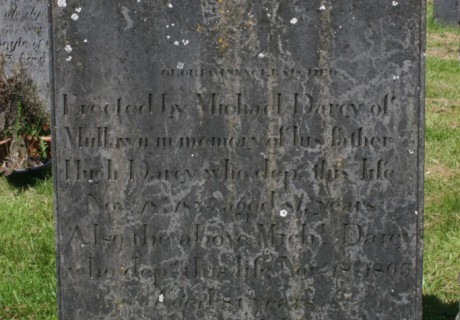 GLORIA IN EXCELSIS DEO
Erected by Michael Darcy of
Mullawn in memory of his father
Hugh Darcy who dep. this life
Nov. aged years
Also the above Michl. Darcy
who dep. this life Nov. 18
aged years